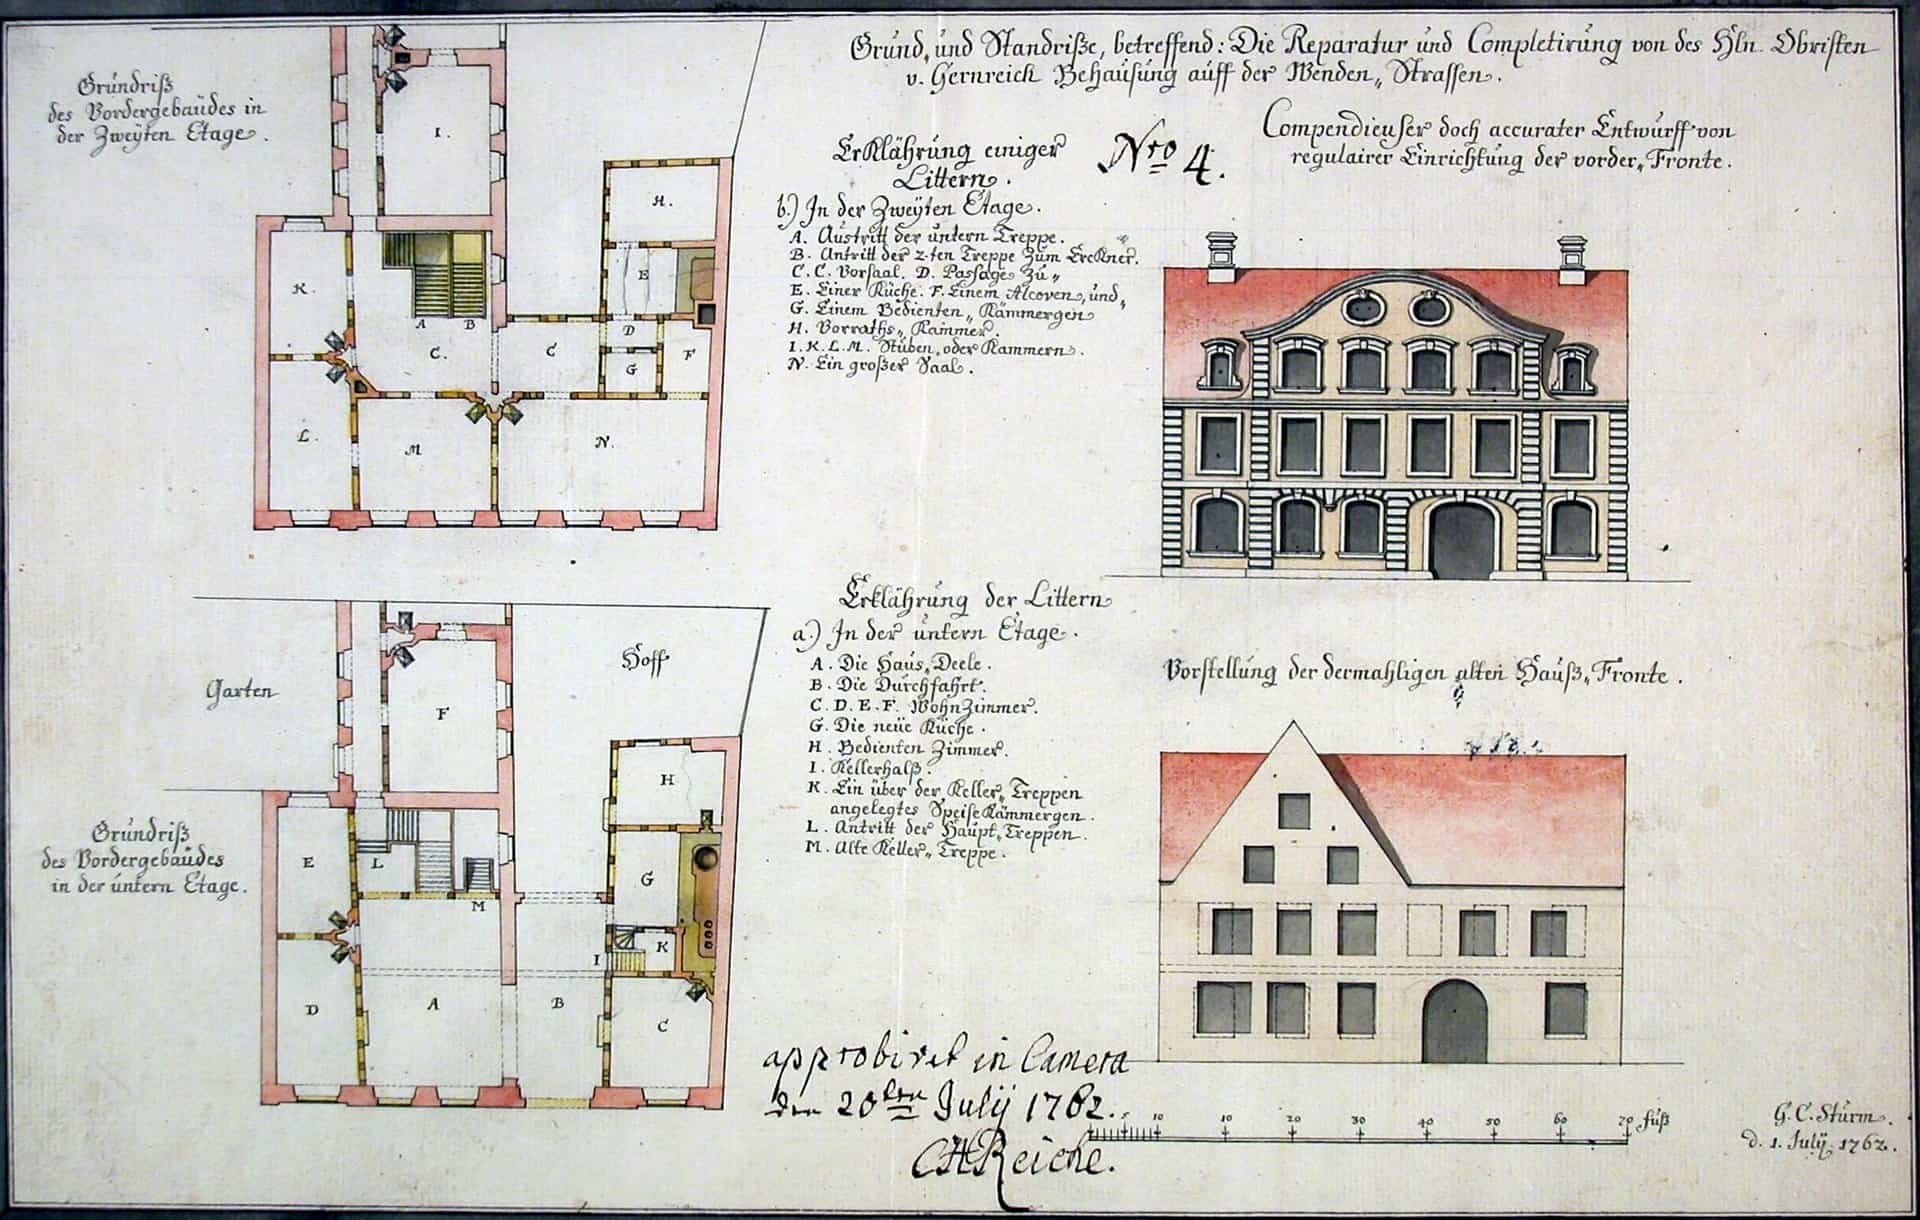 Grund„ und Standriße, betreffend: Die Reparatur und Completirung von des Hln. Obristen
v. Gernreich Behausung auff der Wenden„ Strassen.
Compendieuser doch accurater Entwurff von
regulairer Einrichtung der vorder„ Fronte.
Nro 4.
Grundriß
des Vordergebaüdes in
der Zweyten Etage.
I.
H.
K.
E
A B
D
C.
C
F
G
L.
M
N.
Erklährung einiger
Littern.
b.) In der Zweyten Etage.
A. Austritt der untern Treppe.
B. Antritt der 2-ten Treppe zum Erckner.
C. C. Vorsaal. D. Passage zu„
E. Einer Küche. F. Einem Alcoven, und„
G. Einem Bedienten„ Kämmergen
H. Vorraths„ Kammer.
I. K. L. M. Stüben, oder Kammern.
N. Ein großer Saal.
Garten
Hoff
Grundriß
des Vordergebaüdes
in der untern Etage.
F
H
E
L
G
M
K
I
D
A
B
C
Erklährung der Littern
a.) In der untern Etage.
A. Die Haus„ Deele.
B. Die Durchfahrt.
C. D. E. F. WohnZimmer.
G. Die neüe Küche.
H. Bedienten Zimmer.
I. Kellerhalß.
K. Ein über der Keller„ Treppen
angelegtes SpeiseKämmergen.
L. Antritt der Haupt„ Treppen.
M. Alte Keller„ Treppe.
Vorstellung der dermahligen alten Hauß„ Fronte.
approbiret in Camera
den 20ten Julij 1762.
CHReiche.
5 10 10 20 30 40 50 60 70 fuß
G. C. Sturm.
d. 1. Julij. 1762.